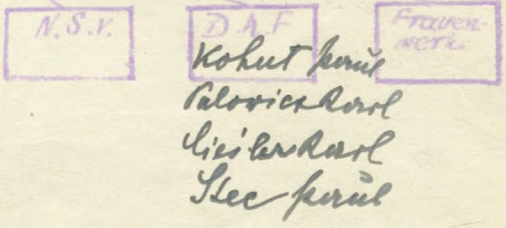 N.S.V. D.A.F Frauen-
werk
Kohut Paul
Palowicz Karl
Cieślar Karl
Stec Paul